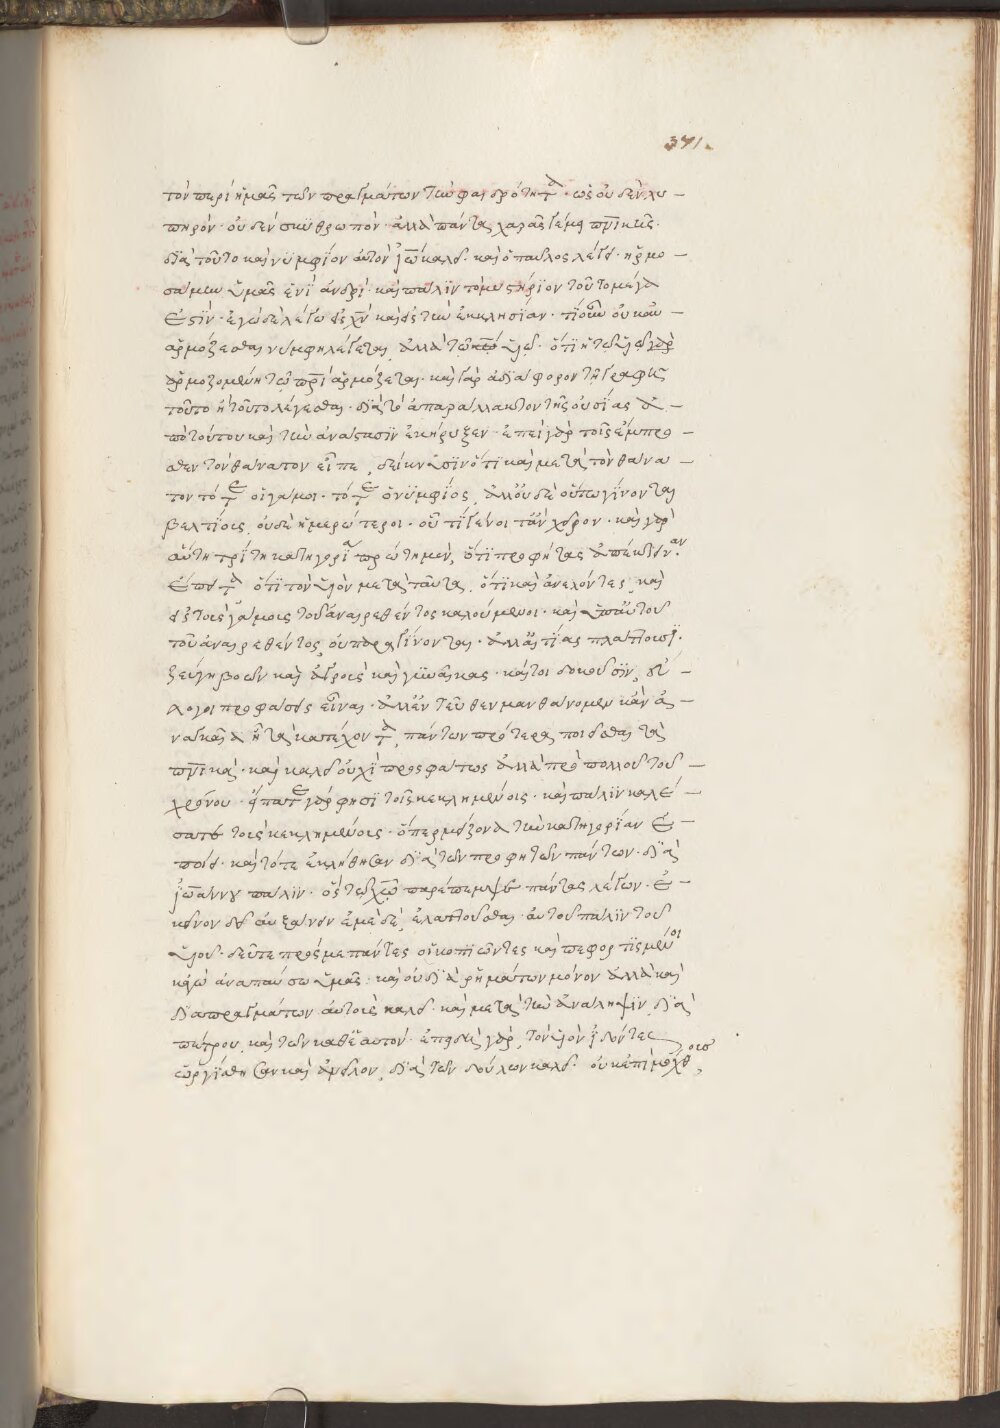 371.
τὸν περὶ ἡμᾶς τῶν πραγμάτων τὴν φαιδρότητα· ὡς οὐδὲν λυ-
πηρόν· οὐδὲν σκυθρωπὸν· ἀλλὰ πάντα χαρᾶς γέμει πνικῆς.
διὰ τοῦτο καὶ νυμφίον αὐτὸν ἰω καλεῖ· καὶ ὁ παῦλος λέγει· ἡρμο-
σάμην ὑμᾶς ἑνὶ ἀνδρί· καὶ πάλιν τὸ μυστήριον τοῦτο μέγα
ἐστίν· ἐγὼ δὲ λέγω εἰς χν καὶ εἰς τὴν ἐκκλησίαν· τί οὖν οὐκ αὐ-
ἁρμόζεσθαι νύμφη λέγεται, ἀλλὰ τῷ υἱῷ· ὅτι ἡ τῷ υἱῷ γὰρ
ἁρμοζομένη τῷ πρὶ ἁρμόζεται· καὶ γὰρ ἀδιάφορον τῇ γραφῇ
τοῦτο ἢ τοῦτο λέγεσθαι· διὰ τὸ ἀπαράλλακτον τῆς οὐσίας ἀ-
πὸ τούτου καὶ τὴν ἀνάστασιν ἐκήρυξεν· ἐπεὶ γὰρ τοῖς ἔμπρο-
σθεν τὸν θάνατον εἶπε, δείκνυσιν ὅτι καὶ μετὰ τὸν θάνα-
τον τότε οἱ γάμοι· τότε ὁ νυμφίος, ἀλλ' οὐδὲ οὕτω γίνονται
βελτίους, οὐδὲ ἡμερώτεροι· οὗ τί γένοιτ' ἂν χεῖρον· καὶ γὰρ
αὕτη τρίτη κατηγορία πρώτη μὲν, ὅτι προφήτας ἀπέκτειναν.
ἔπειτα ὅτι τὸν υἱὸν μετὰ ταῦτα, ὅτι καὶ ἀνελόντες, καὶ
εἰς τοὺς γάμους τοῦ ἀναιρεθέντος καλούμενοι· καὶ ὑπ' αὐτοῦ
τοῦ ἀναιρεθέντος, οὐ παραγίνονται· ἀλλ' αἰτίας πλάττουσι.
ζεύγη βοῶν καὶ ἀγροὺς καὶ γυναῖκας· καίτοι δοκοῦσιν, εὔ-
λογοι προφάσεις εἶναι· ἀλλ' ἐντεῦθεν μανθάνομεν κἂν ἀ-
ναγκαῖα ᾖ τὰ κατέχοντα, πάντων πρότερα ποιεῖσθαι τὰ
πνικά· καὶ καλεῖ οὐχὶ προσφάτως ἀλλὰ πρὸ πολλοῦ τοῦ
χρόνου· εἴπατε γάρ φησι τοῖς κεκλημένοις· καὶ πάλιν καλέ-
σατε τοὺς κεκλημένους· ὅπερ μείζονα τὴν κατηγορίαν ἐ-
ποίει· καὶ τότε ἐκλήθησαν διὰ τῶν προφητῶν πάντων· διὰ
ἰωάννου πάλιν· ὃς τῷ χῷ παρέπεμψε πάντας λέγων· ἐ-
κεῖνον δεῖ αὐξάνειν ἐμὲ δὲ, ἐλαττοῦσθαι· αὐτοῦ πάλιν τοῦ
υἱοῦ· δεῦτε πρός με πάντες οἱ κοπιῶντες καὶ πεφορτισμένοι
κἀγὼ ἀναπαύσω ὑμᾶς· καὶ οὐ διὰ ῥημάτων μόνον ἀλλὰ καὶ
διὰ πραγμάτων αὐτοὺς καλεῖ· καὶ μετὰ τὴν ἀνάληψιν, διὰ
πέτρου, καὶ τῶν κατ' αὐτόν· ἐπειδὴ γὰρ, τὸν υἱὸν ἰδόντες
ὠργίσθησαν καὶ ἀνεῖλον, διὰ τῶν δούλων καλεῖ· οὐκ ἐπὶ μόχθοις,